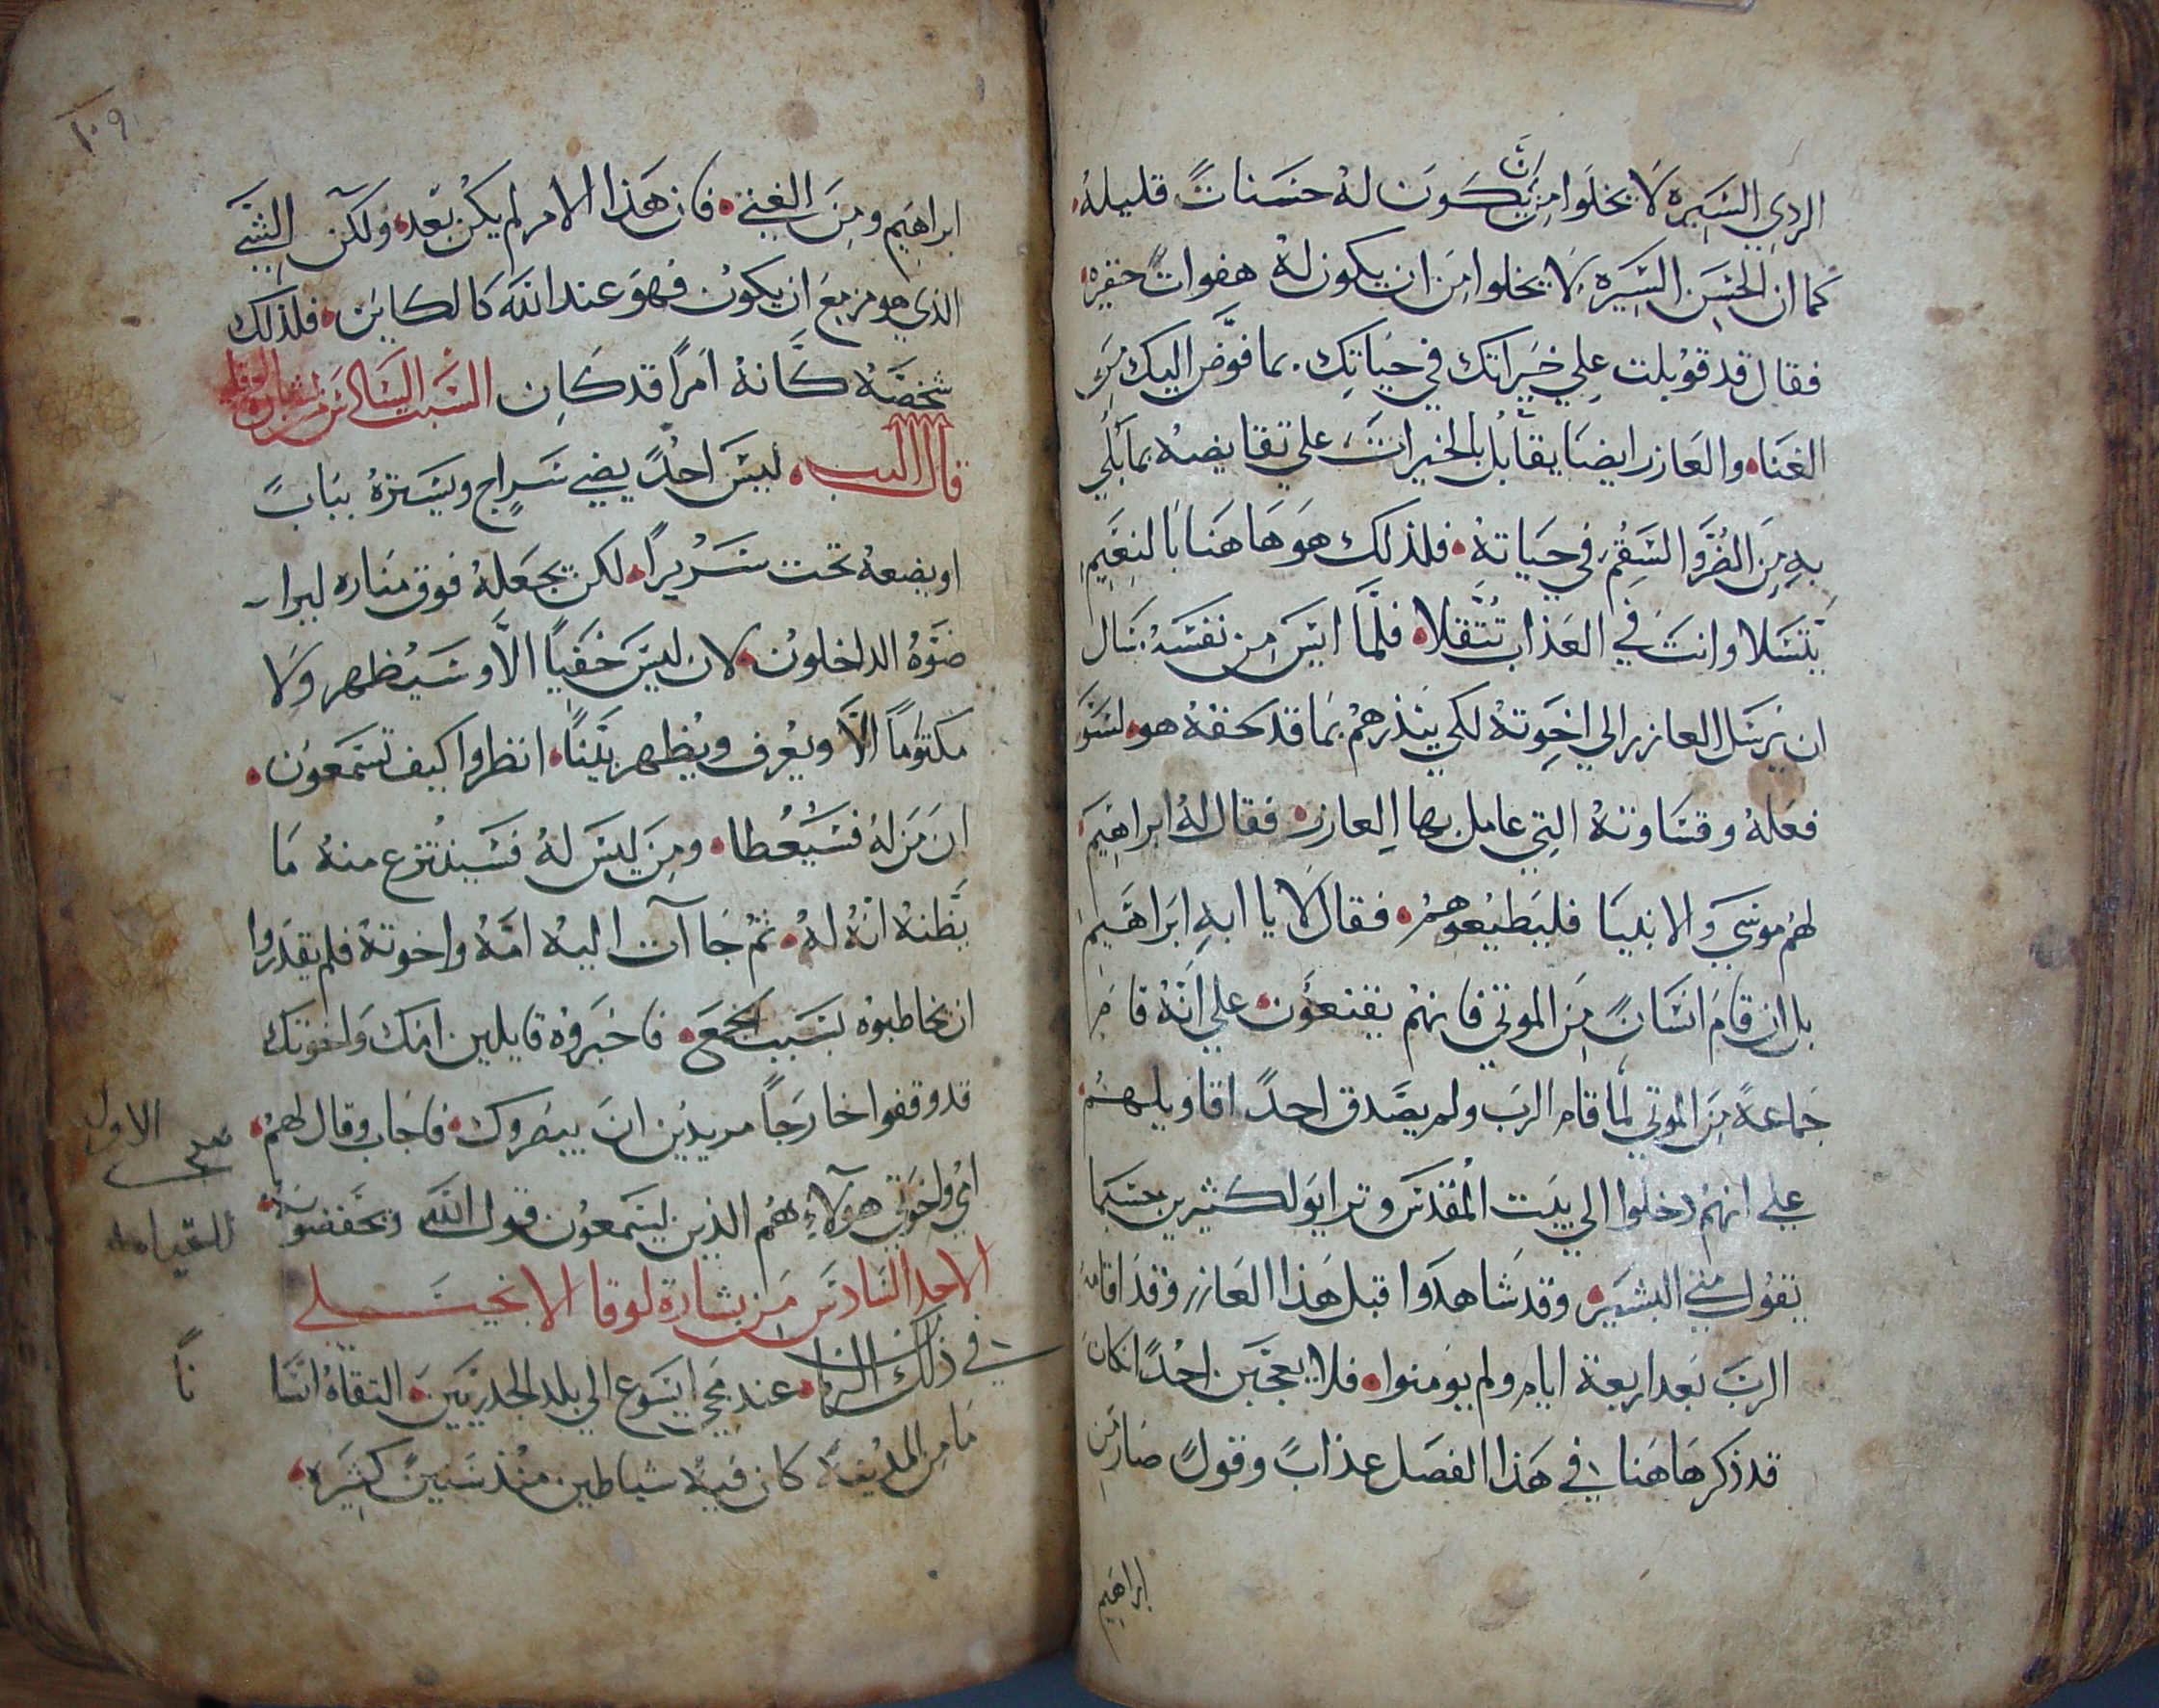 الردي السيره لا يخلوا من ان يكون له حسنات قليله
كما ان الحسن السيره لا يخلوا من ان يكون له هفوات حقيره
فقال قد قوبلت علي خيراتك في حياتك بما فوض اليك من
الغناه والعازر ايضا يقابل بالخيرات علي تقايضه بما بلي
به من الضر والسقم في حياته فلذلك هو هاهنا بالنعيم
يتسلا وانت في العذاب تتقلا فلما ايس من نفسه سال
ان يرسل العازر الي اخوته لكي ينذرهم بما قد لحقه هو لسو
فعله وقساوته التي عامل بها العازر فقال له ابراهيم
لهم موسي والانبيا فليطيعوهم فقال لا يا ابه ابراهيم
بل ان قام انسان من الموتي فانهم يقنعون علي انه قام
جماعة من الموتي لما قام الرب ولم يصدق احد اقاويلهم
علي انهم دخلوا الي بيت المقدس وترايو لكثيرين حسبما
يقول متي البشير وقد شاهدوا قبل هذا العازر وقد اقامه
الرب بعد اربعة ايام ولم يومنوا فلا يعجبن احد ان كان
قد ذكر هاهنا في هذا الفصل عذاب وقول صار من
ابراهيم
١٠٩
ابراهيم ومن الغني فان هذا الامر لم يكن بعد ولكن الشي
الذي هو مزمع ان يكون فهو عند الله كالكاين فلذلك
شخصه كانه امرا قد كان السبت السادس من بشارة لوقا
قال الرب ليس احد يضي سراج ويستره بباب
او يضعه تحت سريرا لكن يجعله فوق مناره ليرا
ضوه الداخلون لان ليس خفيا الا وسيظهر ولا
مكتوما الا ويعرف ويظهر بينا انظروا كيف تسمعون
ان من له فسيعطا ومن ليس له فسينتزع منه ما
يظنه انه له ثم جاآت اليه امه واخوته فلم يقدروا
ان يخاطبوه بسبب الجمع فاخبروه قايلين امك واخوتك
قد وقفوا خارجا مريدين ان يبصروك فاجاب وقال لهم
امي واخوتي هولاء هم الذين يسمعون قول الله ويحفضونه
الاحد السادس من بشارة لوقا الانجيلي
في ذلك الزمان عند مجي ايسوع الي بلد الجدريين التقاه انسا
نا
ما من المدينة كان فيه شياطين منذ سنين كثيره
الاول
للقيامه